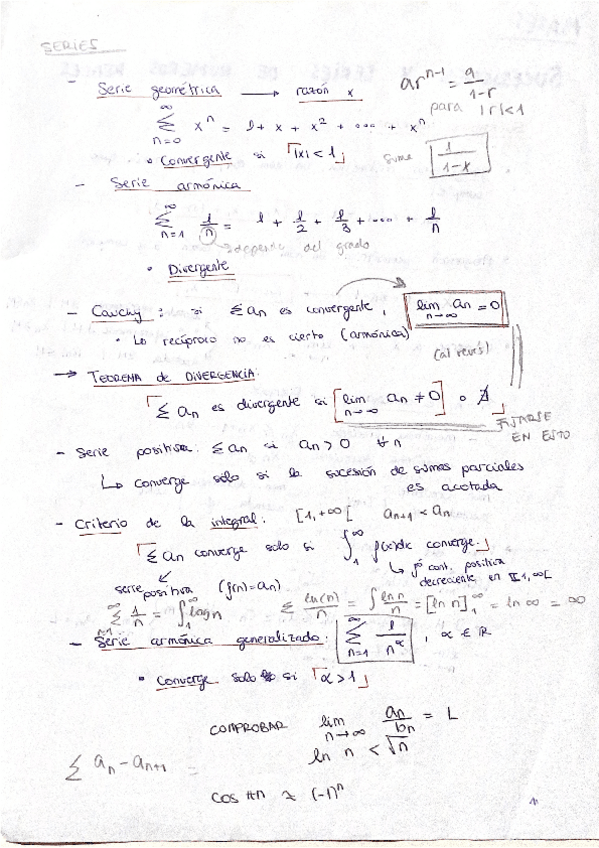 SERIES
- Serie geométrica → razón x
ar^{n-1} = a/(1-r)
para |r|<1
∞ Σ n=0 x^n = 1 + x + x² + ... + x^n
• Convergente si |x| < 1
suma 1/(1-x)
- Serie armónica
∞ Σ n=1 1/n = 1 + 1/2 + 1/3 + ... + 1/n
depende del grado
• Divergente
- Cauchy: si Σ an es convergente, lim n→∞ an = 0
• Lo recíproco no es cierto (armónica)
(al revés)
→ TEOREMA de DIVERGENCIA:
Σ an es divergente si lim n→∞ an ≠ 0 o ∄
FIJARSE
EN ESTO
- Serie positiva: Σ an si an > 0 ∀n
↳ converge solo si la sucesión de sumas parciales
es acotada
- Criterio de la integral: [1,+∞[ an+1 < an
Σ an converge solo si ∫₁^∞ f(x)dx converge.
↳ f cont. positiva
decreciente en [1,∞[
serie positiva (f(n)=an)
∞ Σ n=1 1/n = ∫₁^∞ log n
Σ ln(n)/n = ∫ ln n/n = [ln n]₁^∞ = ln ∞ = ∞
- Serie armónica generalizada: ∞ Σ n=1 1/n^α, α ∈ ℝ
• Converge solo si α > 1
COMPROBAR lim n→∞ an/bn = L
ln n < √n
Σ an - an+1 =
cos πn ≈ (-1)^n